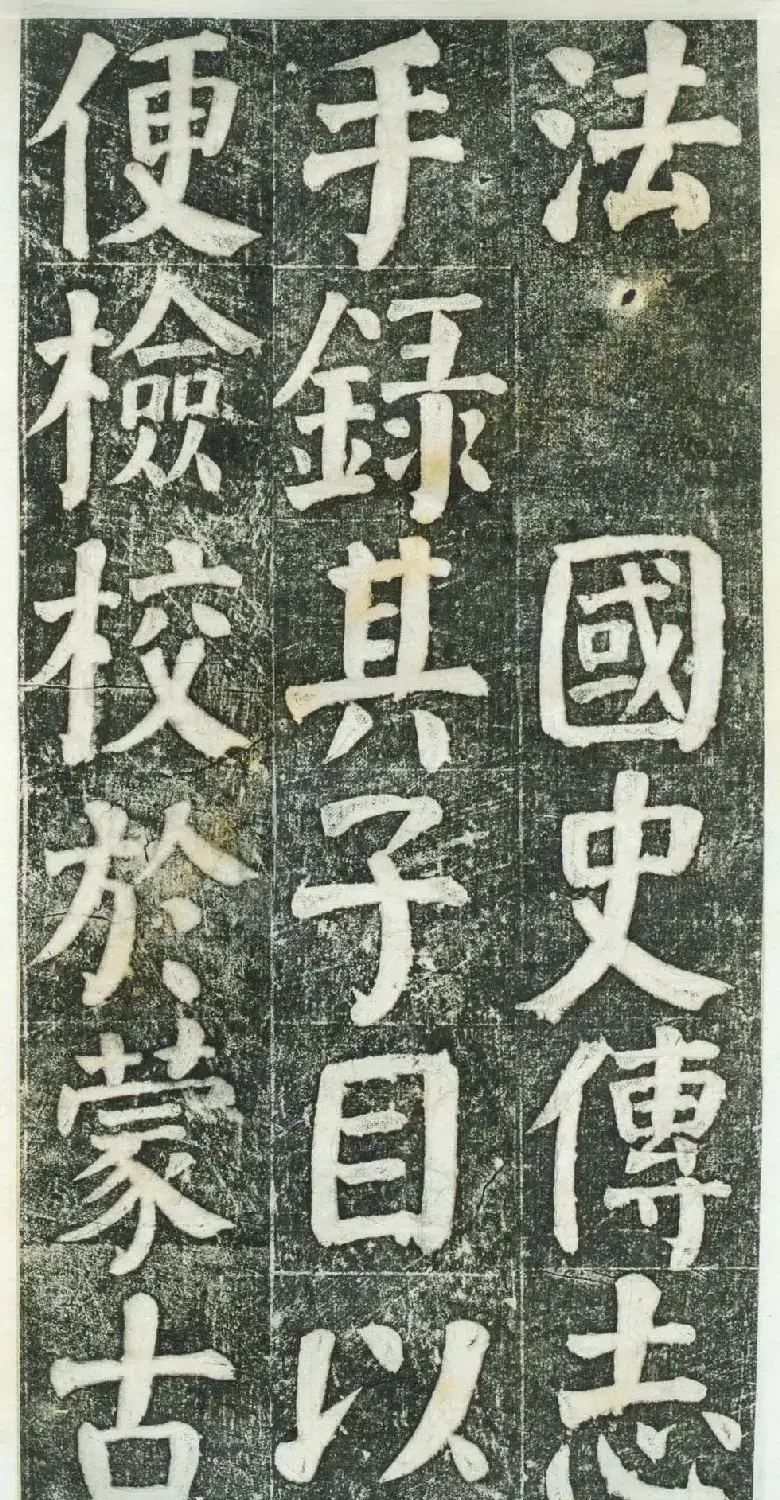 法 國史傳志
手録其子目以
便檢校於蒙古